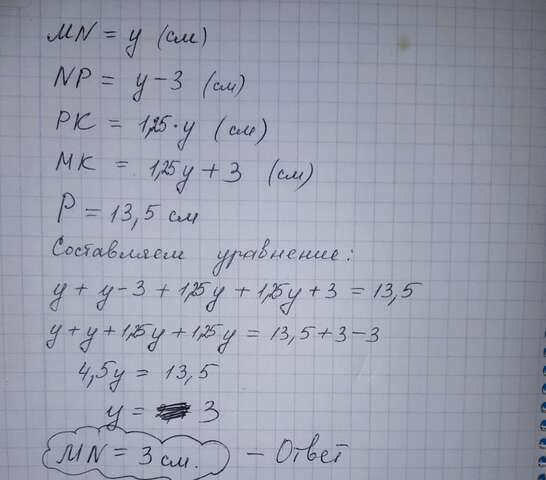 MN = y (см)
NP = y - 3 (см)
PK = 1,25 · y (см)
MK = 1,25y + 3 (см)
P = 13,5 см
Составляем уравнение:
y + y - 3 + 1,25y + 1,25y + 3 = 13,5
y + y + 1,25y + 1,25y = 13,5 + 3 - 3
4,5y = 13,5
y = 3
MN = 3 см. - Ответ